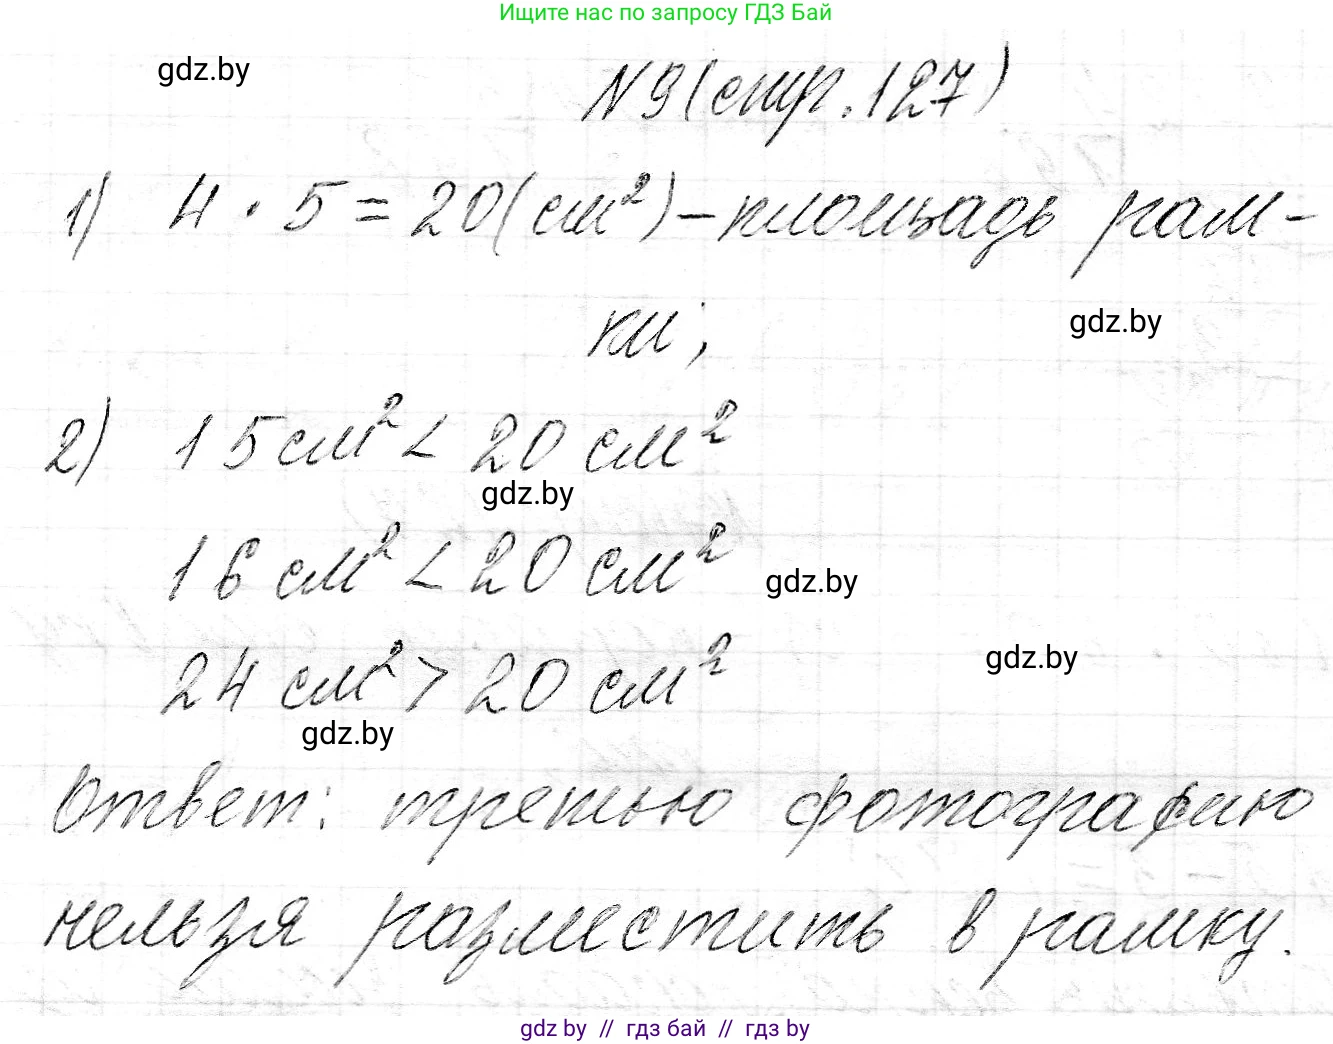 Ищите нас по запросу ГДЗ Бай
gdz.by
N9(стр.127)
1) 4 · 5 = 20(см²) – площадь рам-
ки;
gdz.by
2) 15 см² < 20 см²
gdz.by
16 см² < 20 см²
gdz.by
24 см² > 20 см²
gdz.by
gdz.by
Ответ: третью фотографию
нельзя разместить в рамку.
gdz by // гдз бай // гдз by